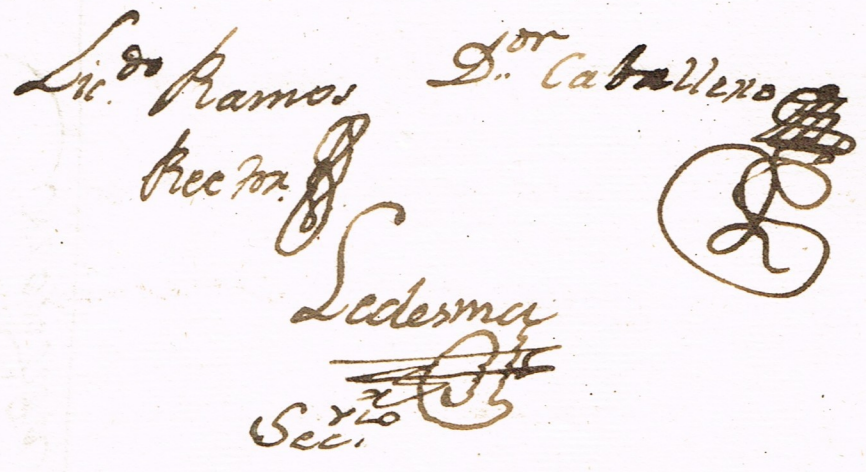 Lic.do Ramos
Rector.
D.or Caballero
Ledesma
Sec.rio